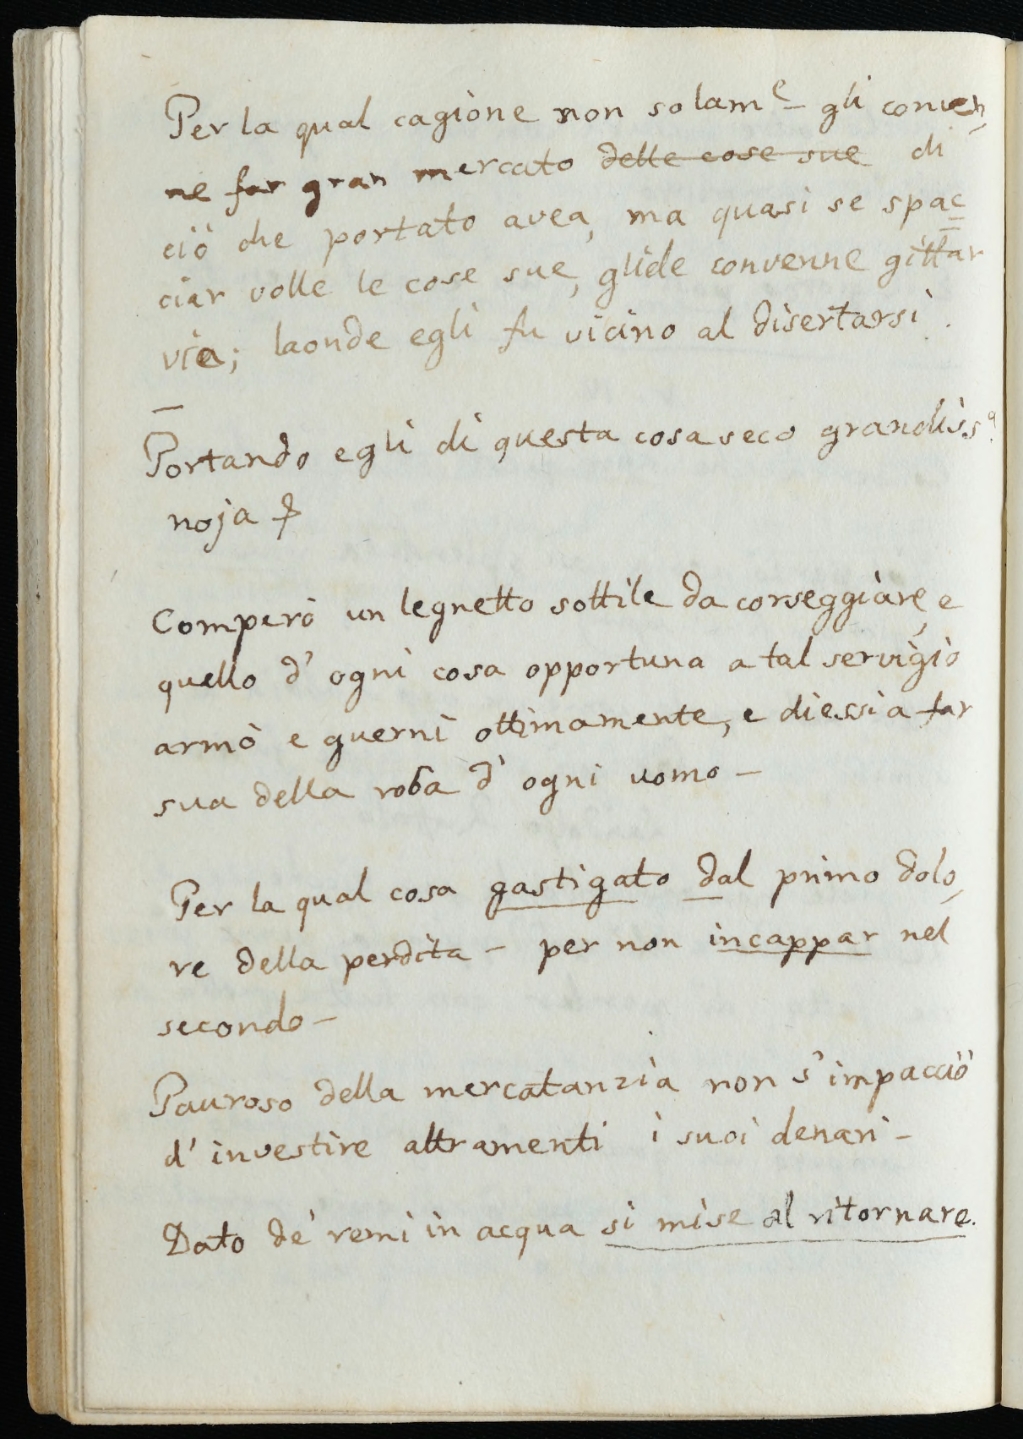 Per la qual cagione non solam.e gli conven,
ne far gran mercato ~~delle cose sue~~ di
ciò che portato avea, ma quasi se spac=
ciar volle le cose sue, gliele convenne gittar
via; laonde egli fu vicino al disertarsi.
Portando egli di questa cosa seco grandiss.a
noja
Comperò un legnetto sottile da corseggiare, e
quello d' ogni cosa opportuna a tal servigio
armò e guernì ottimamente, e diessi a far
sua della roba d' ogni uomo –
Per la qual cosa gastigato dal primo dolo,
re della perdita – per non incappar nel
secondo –
Pauroso della mercatanzia non s' impacciò
d' investire altramenti i suoi denari –
Dato de' remi in acqua si mise al ritornare.